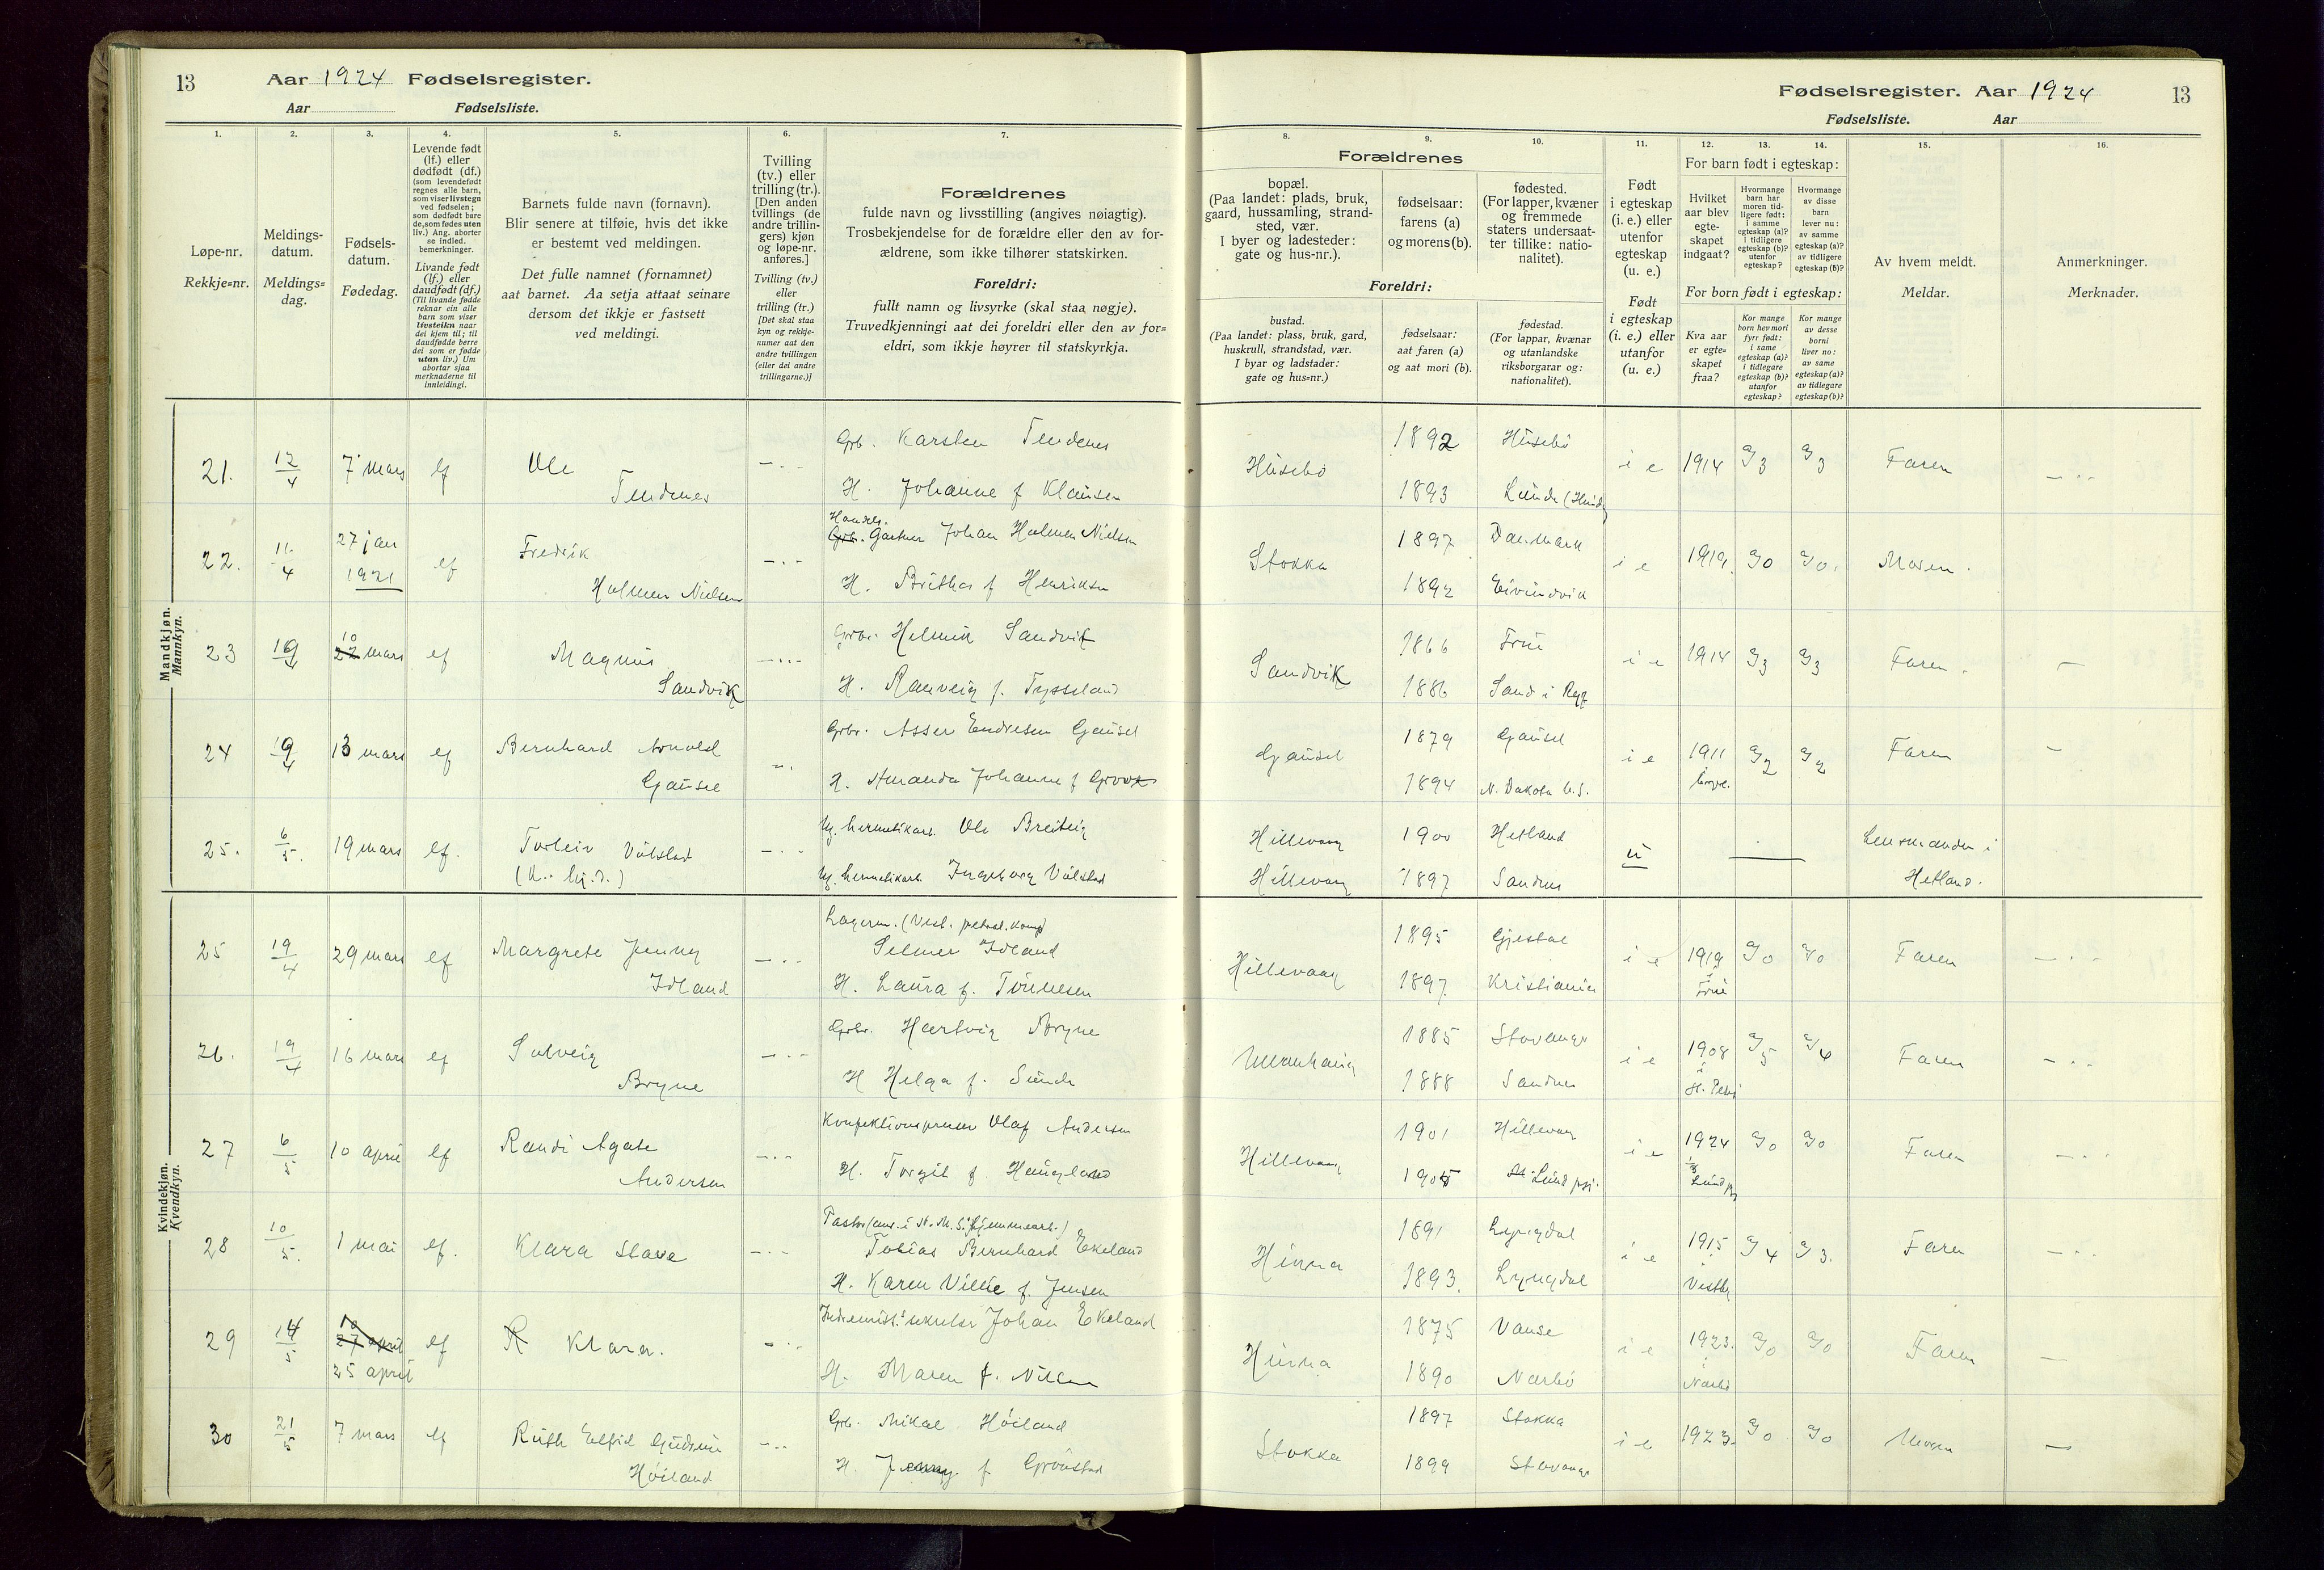 13 Aar 1924 Fødselsregister.
Aar Fødselsliste.
1. 2. 3. 4. 5. 6. 7.
Løpe-nr.
Rekkje=nr.
Meldings-
datum.
Meldings=
dag.
Fødsels-
datum.
Fødedag.
Levende født
(lf.) eller
dødfødt (df.)
(som levendefødt
regnes alle barn,
som viser livstegn
ved fødselen;
som dødfødt bare
de, som fødes uten
liv.) Ang. aborter
se indled.
bemerkninger.
Livande født
(lf.) eller
daudfødt (df.)
(Til livande fødde
reknar ein alle
barn som viser
livsteikn naar
dei kjem til; til
daudfødde berre
dei som er fødde
utan liv.) Um
abortar sjaa
merknaderne til
innleidingi.
Barnets fulde navn (fornavn).
Blir senere at tilføie, hvis det ikke
er bestemt ved meldingen.
Det fulle namnet (fornamnet)
aat barnet. Aa setja attaat seinare
dersom det ikkje er fastsett
ved meldingi.
Tvilling
(tv.) eller
trilling (tr.).
[Den anden
tvillings (de
andre trillin-
gers) kjøn
og løpe-nr.
anføres.]
Tvilling (tv.)
eller
trilling (tr.)
[Det skal staa
kyn og rekkje-
numer aat den
andre tvillingen
(eller dei andre
trillingarne.)]
Forældrenes
fulde navn og livsstilling (angives nøiagtig).
Trosbekjendelse for de forældre eller den av for-
ældrene, som ikke tilhører statskirken.
Foreldri:
fullt namn og livsyrke (skal staa nøgje).
Truvedkjenningi aat dei foreldri eller den av for=
eldri, som ikkje høyrer til statskyrkja.
Mandkjøn.
Mannkyn.
21. 12/4 7' mars lf Ole
Tendenes
Grb. Karsten Tendenes
H. Johanne f Klausen
22. 11/4 27 jan
1921 lf Fredrik
Holmen Nielsen
Handels.
Grb. Gartner Johan Holmen Nielsen
H. Britha f Henriksen
23 19/4 10
22 mars lf Magnus
Sandvik
Grbr. Helmik Sandvik
H. Ranveig f. Tysseland
24 19/4 13 mars lf Bernhard Arnold
Gausel
Grbr. Asser Endresen Gausel
H. Amanda Johanne f
25. 6/5. 19 mars lf. Torleiv Vølstad
Ug. hermetikarb. Ole Breiteig
Ug. hermetikarb. Ingeborg Vølstad
Kvindekjøn.
Kvendkyn.
25 19/4 29 mars lf Margrete Jenny
Idland
Lagerm. (Vest. petrol. komp)
Selmer Idland
H. Laura f. Tønnesen
26. 19/4 16 mars lf Solveig
Bryne
Grbr. Hartvig Bryne
H Helga f. Sunde
27 6/5 10 april lf Randi Agate
Andersen
Olaf Andersen
H. Torgil f. Haugland
28 10/5. 1 mai lf. Klara Slava
Pastor
Tobias Bernhard Ekeland
H. Karen Villie f. Jensen
29 14/5 10
27 april
25 april lf R Klara.
Johan Ekeland
H. Maren f. Nilsen
30 21/5 7 mars lf Ruth Elfrid Gudrun
Høiland
Grb. Mikal Høiland
H. Jenny f Grønstad
Fødselsregister. Aar 1924 13
Fødselsliste. Aar
8. 9. 10. 11. 12. 13. 14. 15. 16.
Forældrenes
bopæl.
(Paa landet: plads, bruk,
gaard, hussamling, strand-
sted, vær.
I byer og ladesteder:
gate og hus-nr.).
fødselsaar:
farens (a)
og morens (b).
fødested.
(For lapper, kvæner
og fremmede
staters undersaat-
ter tillike: natio-
nalitet).
Foreldri:
bustad.
(Paa landet: plass, bruk, gard,
huskrull, strandstad, vær.
I byar og ladstader:
gate og hus-nr.)
fødselsaar:
aat faren (a)
og aat mori (b).
fødestad.
(For lappar, kvænar
og utanlandske
riksborgarar og:
nationalitet).
Født
i egteskap
(i. e.) eller
utenfor
egteskap
(u. e.)
Født
i egteskap
(i. e.) eller
utanfor
(u. e.)
For barn født i egteskap:
Hvilket
aar blev
egte-
skapet
indgaat?
Hvormange
barn har
moren tid-
ligere født:
i samme
egteskap (a)?
i tidligere
egteskap (b)?
utenfor
egteskap?
Hvormange
av disse
barn
lever nu:
av samme
egteskap (a)?
av tidligere
egteskap (b)?
For born født i egteskap:
Kva aar
er egte=
skapet
fraa?
Kor mange
born hev mori
fyrr født:
i same
egteskap (a)?
i tidlegare
egteskap (b)?
utanfor
egteskap?
Kor mange
av desse
borni
liver no:
av same
egteskap (a)?
av tidlegare
egteskap (b)?
Av hvem meldt.
Meldar.
Anmerkninger.
Merknader.
Husebø 1892 Husebø i e 1914 a/3 a/3 Faren
1893 Lunde
Stokka 1897 Danmark i e 1919. a/0 a/0. Moren.
1892 Eivindvik
Sandvik 1866 Frue i e 1914 a/3 a/3 Faren.
1886 Sand i Ryf
Gausel 1879 Gausel i e 1911 a/2 a/2 Faren
1894 N. Dakota U.S.
Hillevaag 1900 Hetland u Lensmanden i
Hillevaag 1897 Sandnes Hetland.
Hillevaag 1895 Gjestal i e 1919 a/0 a/0 Faren
1897. Kristiania i Frue
1885 Stavanger i e 1908 a/5 a/4 Faren
1888 Sandnes i St. Petri
Hillevaag 1901 Hillevaag i e 1924 a/0 a/0 Faren
1905 Lund
Hinna 1891 Lyngdal i e 1915 a/4 a/3. Faren
1893. Lyngdal
Hinna 1875 Vanse i e 1923. a/0 a/0 Faren
1890 Nærbø i Nærbø
Stokka 1897 Stokka i e 1923. a/0 a/0 Moren
1899 Stavanger